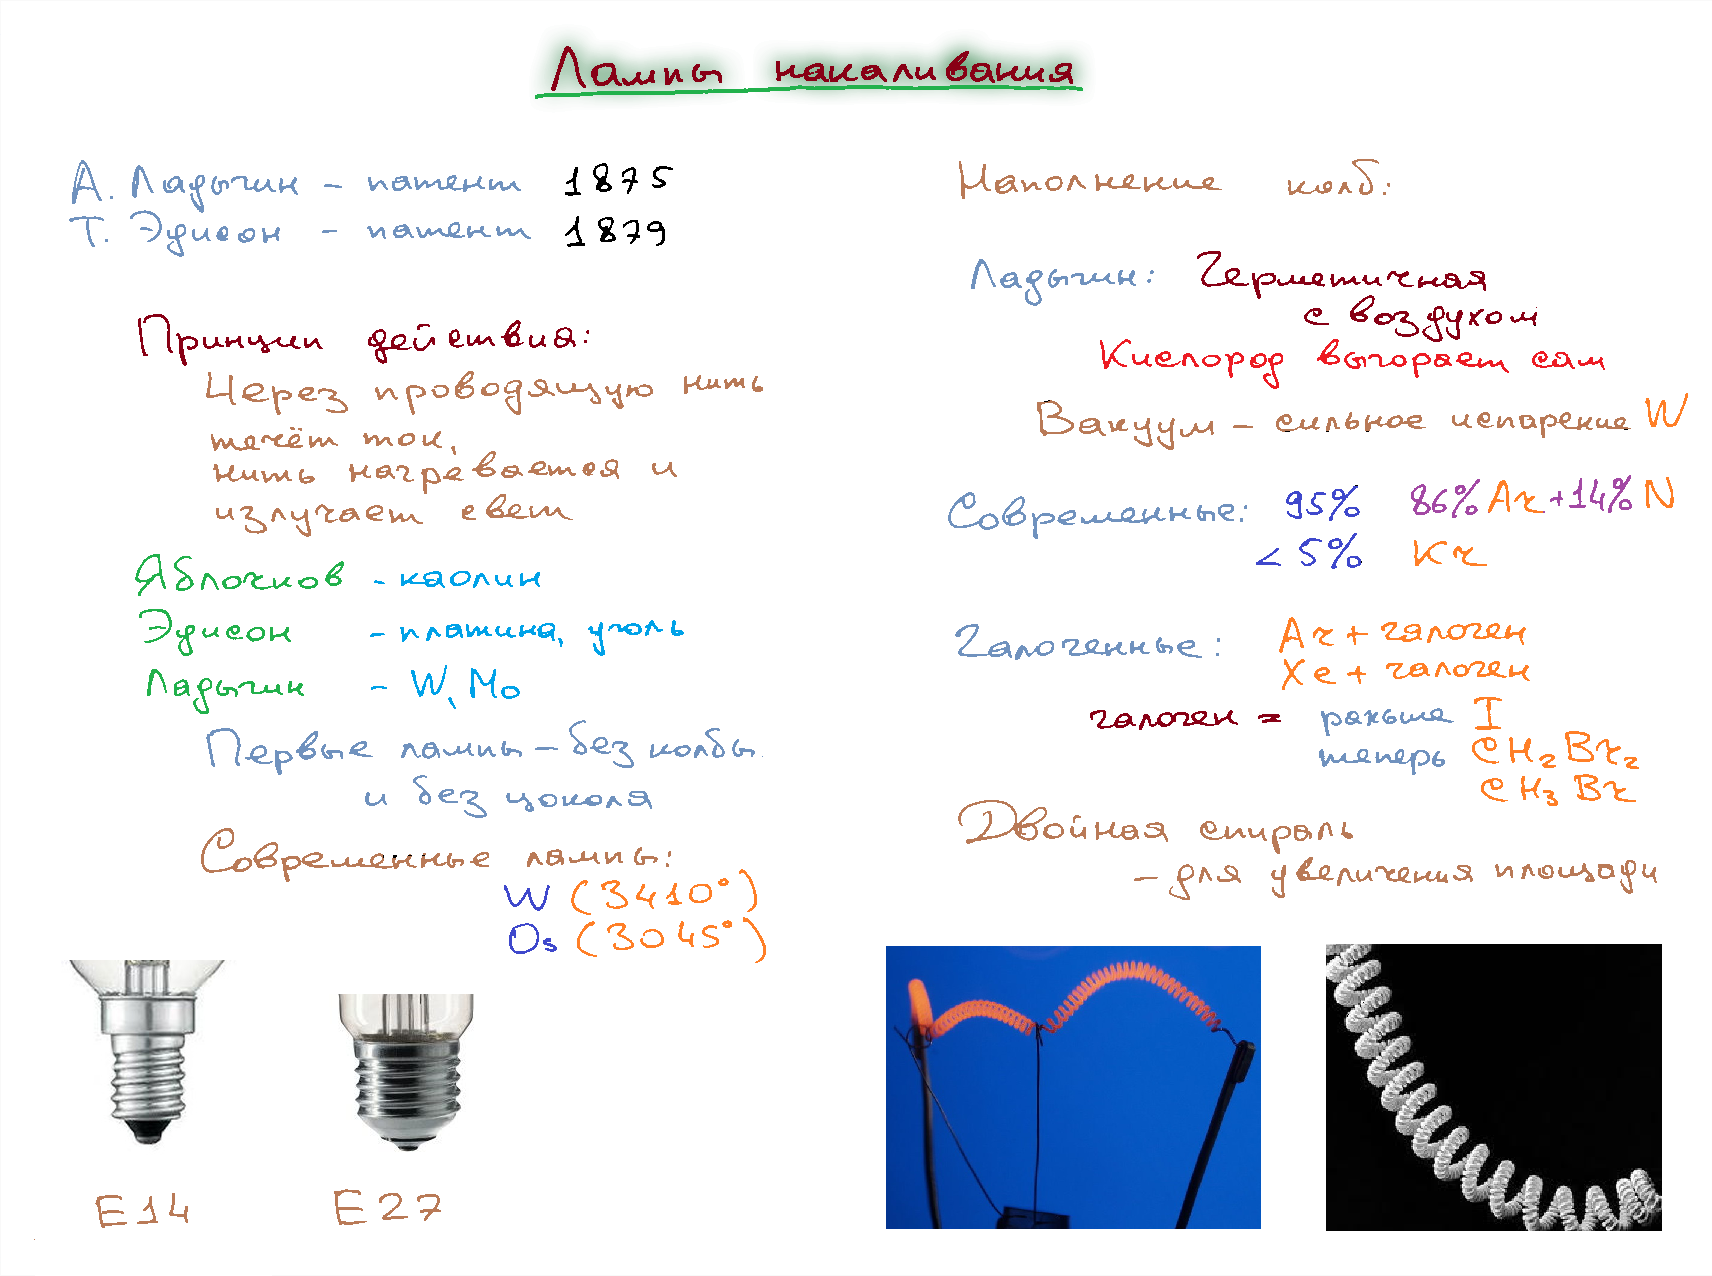 Лампы накаливания
А. Ладыгин – патент 1875
Т. Эдисон – патент 1879
Принцип действия:
Через проводящую нить
течёт ток,
нить нагревается и
излучает свет
Яблочков - каолин
Эдисон - платина, уголь
Ладыгин - W, Mo
Первые лампы – без колбы
и без цоколя
Современные лампы:
W (3410°)
Os (3045°)
E14
E27
Наполнение колб:
Ладыгин: Герметичная
с воздухом
Кислород выгорает сам
Вакуум – сильное испарение W
Современные: 95% 86% Ar + 14% N
< 5% Kr
Галогенные: Ar + галоген
Xe + галоген
галоген = раньше I
теперь CH₂Br₂
CH₃Br
Двойная спираль
– для увеличения площади